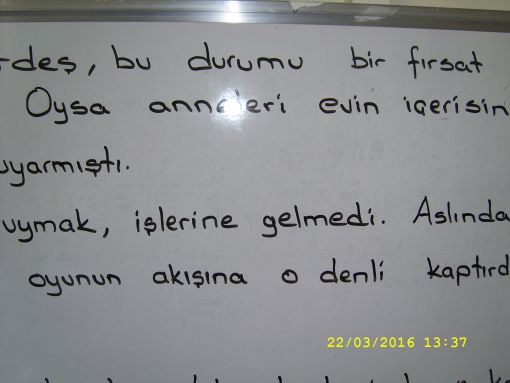 rdeş, bu durumu bir fırsat
Oysa anneleri evin içerisin
uyarmıştı.
uymak, işlerine gelmedi. Aslında
oyunun akışına o denli kaptırd
22/03/2016 13:37